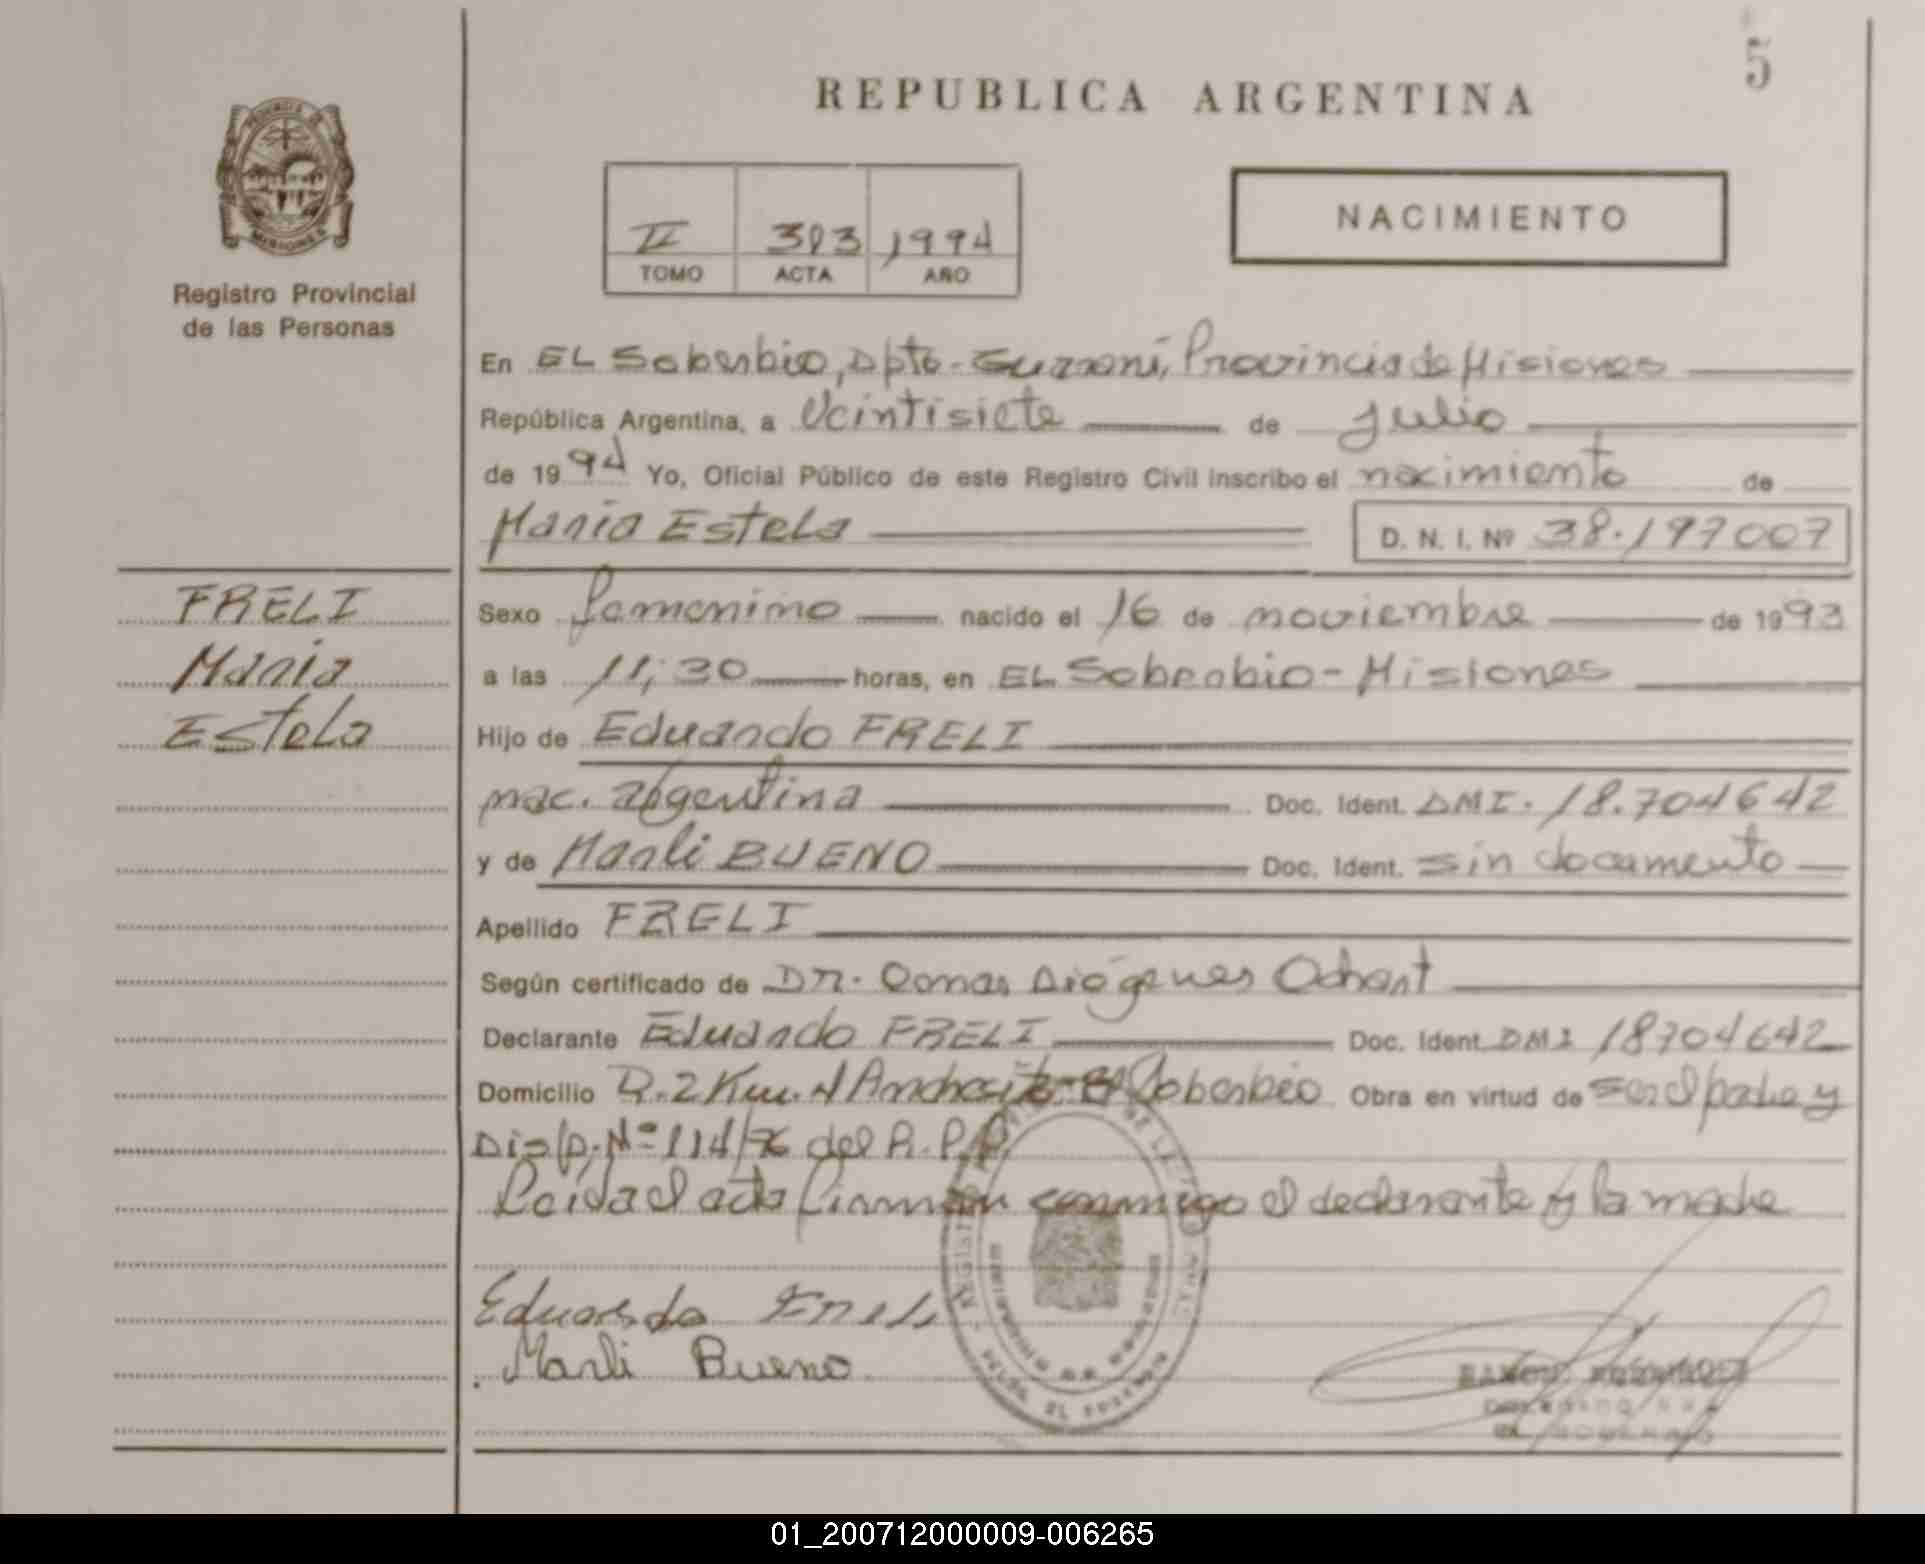 5
REPUBLICA ARGENTINA
NACIMIENTO
II 393 1994
TOMO ACTA AÑO
Registro Provincial
de las Personas
En EL Soberbio, Dpto. Guaraní, Provincia de Misiones
República Argentina, a Veintisiete de Julio
de 1994 Yo, Oficial Público de este Registro Civil inscribo el nacimiento de
Maria Estela D. N. I. Nº 38.197007
FRELI
Maria
Estela
Sexo femenino nacido el 16 de noviembre de 1993
a las 11,30 horas, en EL Soberbio - Misiones
Hijo de Eduardo FRELI
nac. argentina Doc. Ident. DMI. 18.704642
y de Marli BUENO Doc. Ident. sin documento
Apellido FRELI
Según certificado de Dr. Omar Diógenes
Declarante Eduardo FRELI Doc. Ident. DMI 18704642
Domicilio R. 2 Km. Soberbio Obra en virtud de ser el padre y
Disp. Nº 114/76 del R.P.P.
Leída el acta firman conmigo el declarante y la madre
Eduardo Freli
Marli Bueno
01_200712000009-006265